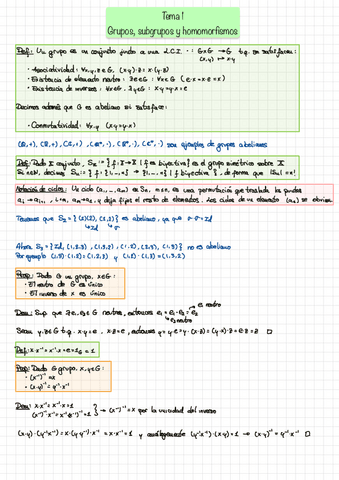 Tema 1
Grupos, subgrupos y homomorfismos
Def: Un grupo es un conjunto junto a una L.C.I. · : G×G → G t.q. se satisfacen:
(x,y) ↦ x·y
· Asociatividad: ∀x,y,z∈G, (x·y)·z = x·(y·z)
· Existencia de elemento neutro: ∃e∈G : ∀x∈G (e·x = x·e = x)
· Existencia de inverso: ∀x∈G, ∃y∈G : x·y = y·x = e
Decimos además que G es abeliano si satisface:
· Conmutatividad: ∀x,y (x·y = y·x)
(Q,+), (R,+), (C,+), (Q*,·), (R*,·), (C*,·) son ejemplos de grupos abelianos
Def: Dado X conjunto, Sx := { f: X→X | f es biyectiva} es el grupo simétrico sobre X
Si n∈N, decimos Sn := { f: {1,...,n} → {1,...,n} | f biyectiva }, de forma que |Sn| = n!
Notación de ciclos: Un ciclo (a1,...,an) ∈ Sn, es una permutación que traslada los puntos
y deja fijos el resto de elementos. Los ciclos de un elemento (a1) se obvian
Tenemos que S2 = es abeliano, ya que
Ahora S3 = {Id, (1,2,3), (1,3,2), (1,2), (2,3), (1,3)} no es abeliano
Por ejemplo (1,3)·(1,2) = (1,2,3) y (1,2)·(1,3) = (1,3,2)
Prop: Dado G un grupo, x∈G:
· El neutro de G es único
· El inverso de x es único
Dem: Sup que ∃e1,e2∈G neutros, entonces e1 = e1·e2 = e2
es neutro
es neutro
Sean y,z∈G t.q. x·y = e, x·z = e, entonces y = y·e = y·(x·z) = (y·x)·z = e·z = z □
Def: x·x⁻¹ = x⁻¹·x = e = 1G = 1
Prop: Dado G grupo, x,y∈G:
· (x⁻¹)⁻¹ = x
· (x·y)⁻¹ = y⁻¹·x⁻¹
Dem: x·x⁻¹ = x⁻¹·x = 1
→ (x⁻¹)⁻¹ = x por la unicidad del inverso
(x·y)·(y⁻¹x⁻¹) = x·(y·y⁻¹)·x⁻¹ = x·x⁻¹ = 1 y análogamente (y⁻¹x⁻¹)·(x·y) = 1 → (x·y)⁻¹ = y⁻¹·x⁻¹ □